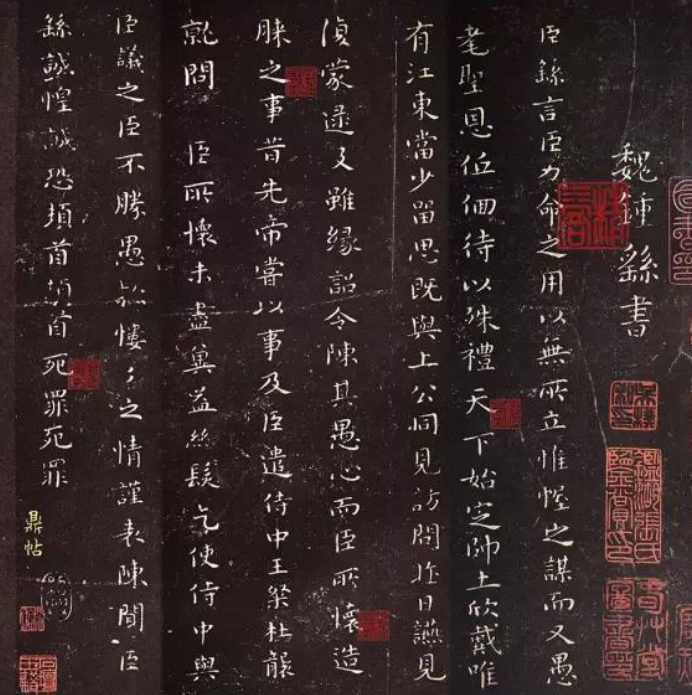 魏鍾繇書
臣繇言臣力命之用以無所立惟幄之謀而又愚
耄聖恩低佪待以殊禮天下始定帥土欣戴唯
有江東當少留思既與上公同見訪問昨日讌見
復蒙逮及雖緣詔令陳其愚心而臣所懷造
膝之事昔先帝嘗以事及臣遣侍中王粲杜襲
就問 臣所懷未盡奚益絲髮乞使侍中與
臣議之臣不勝愚款慺々之情謹表陳聞 臣
繇誠惶誠恐頓首頓首死罪死罪
鼎帖